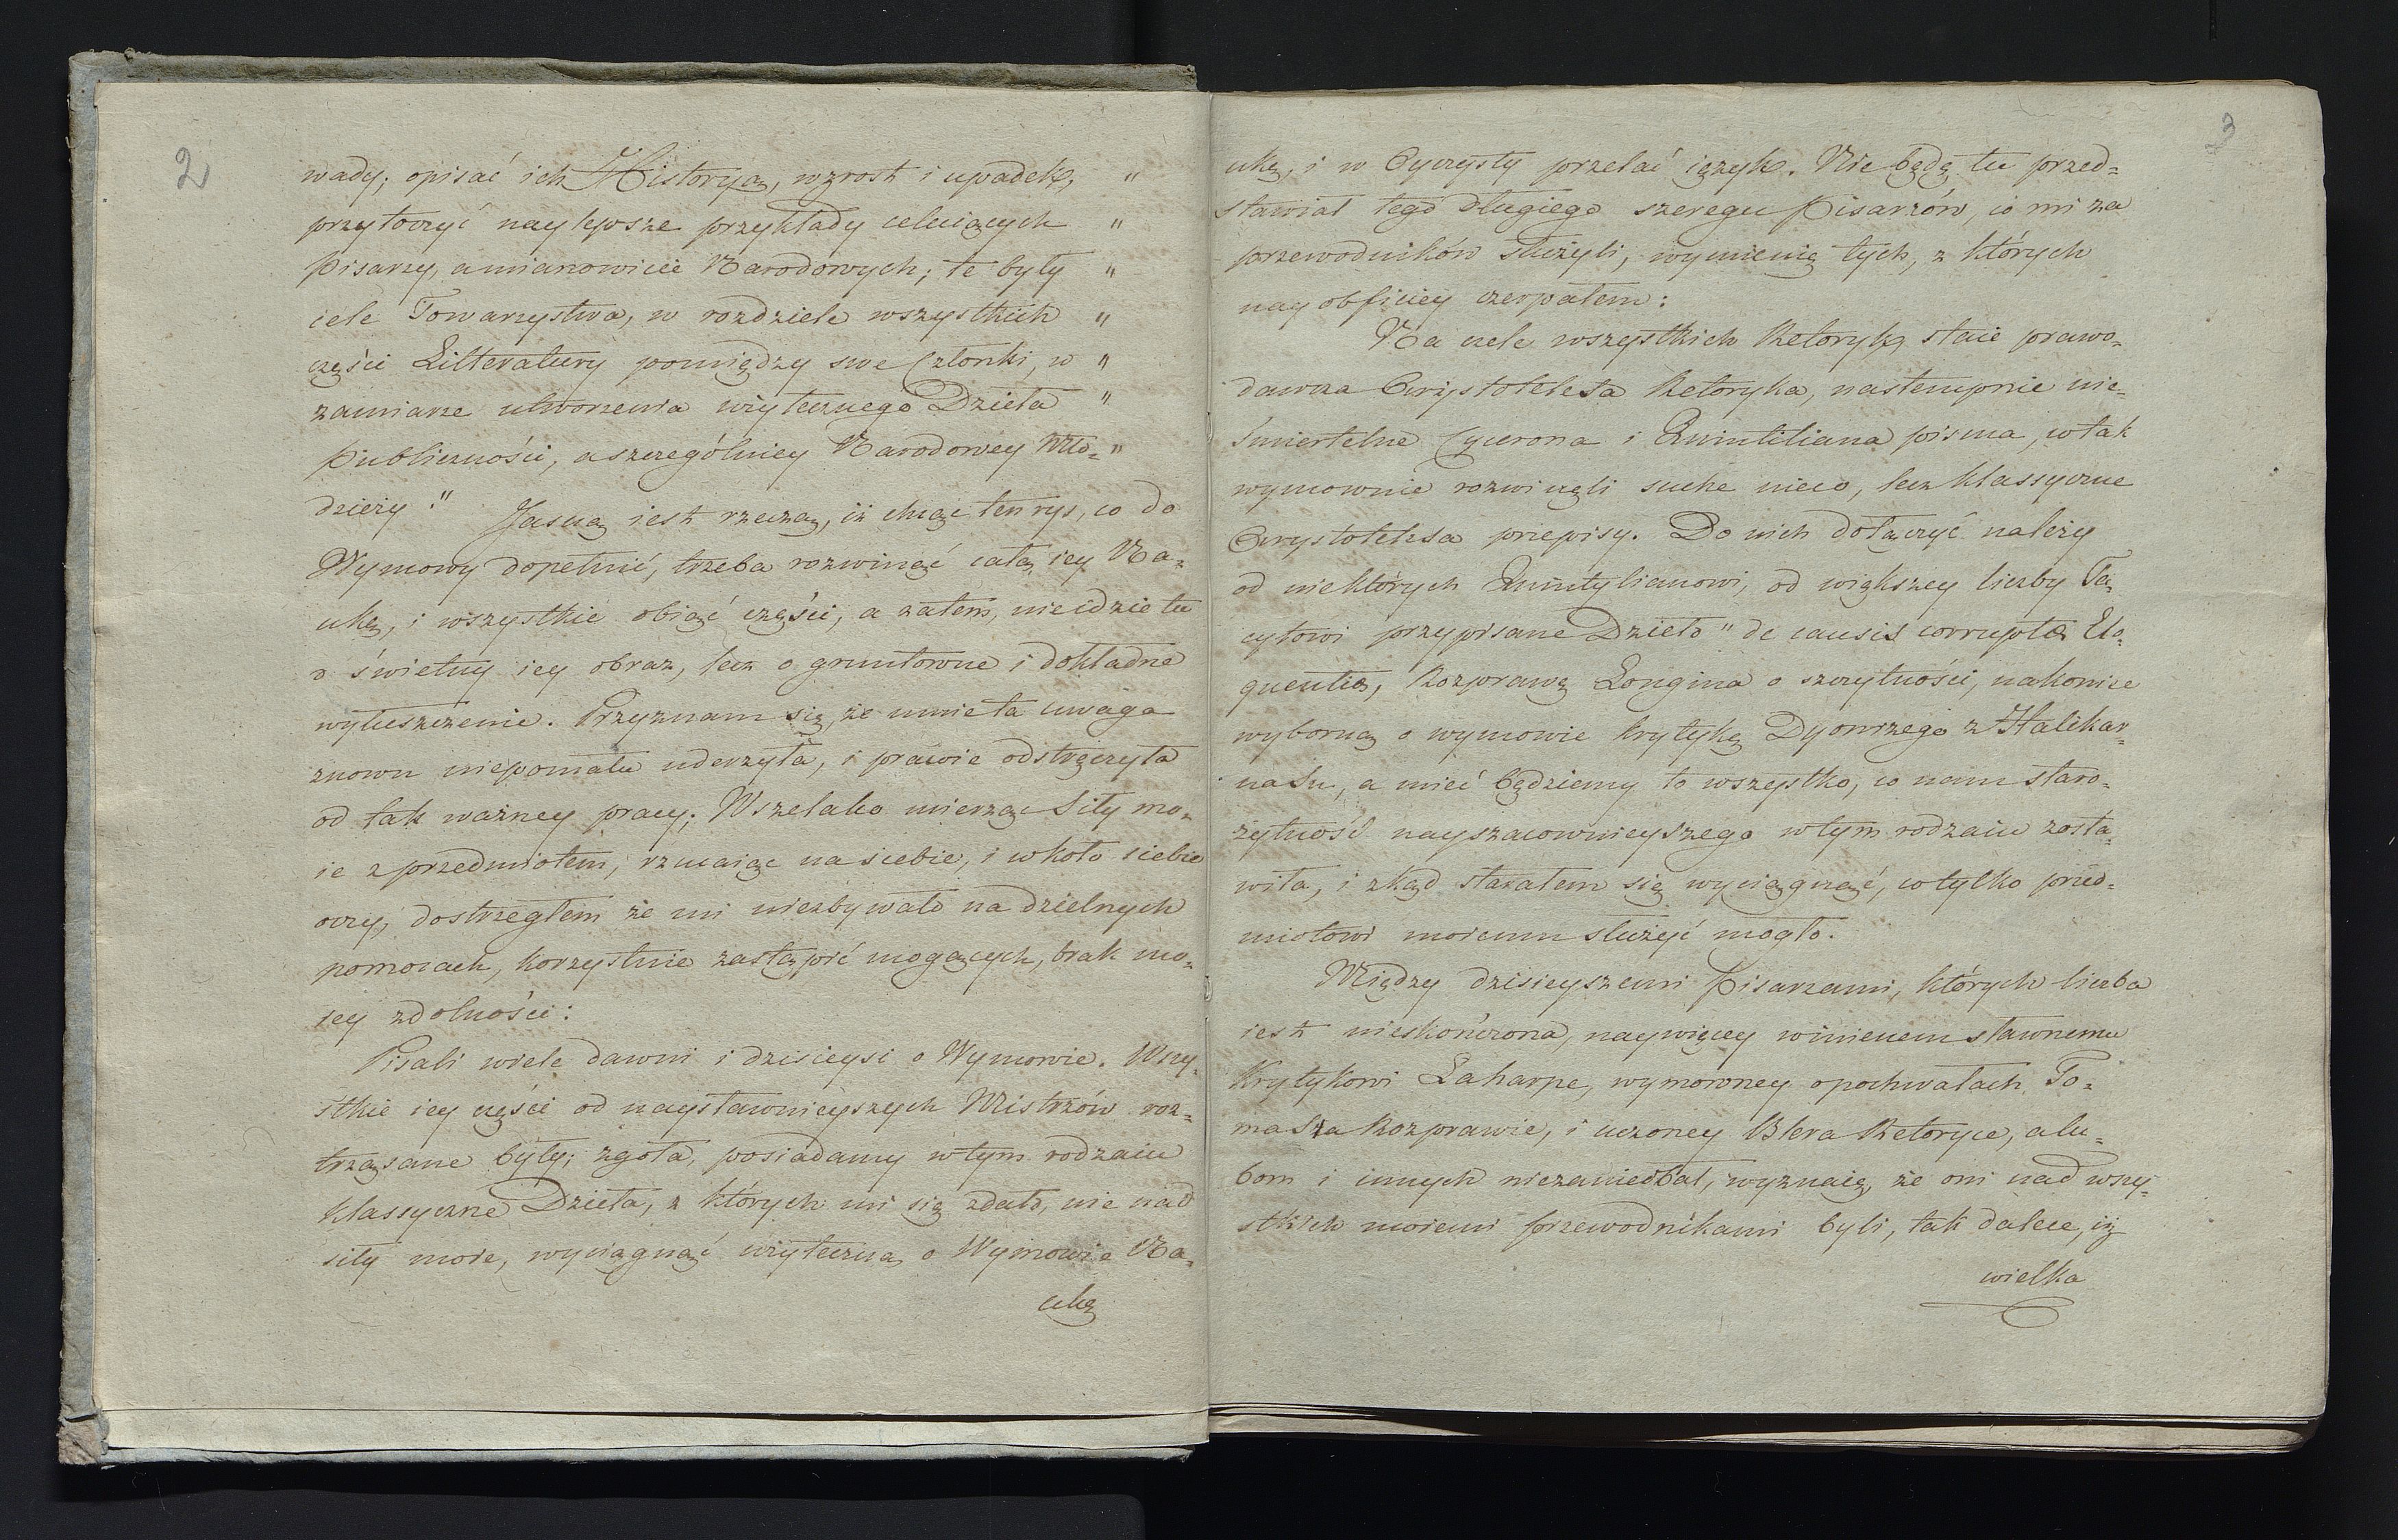 2
wady; opisać ich Historyą, wzrost i upadek, "
przytoczyć naylepsze przykłady celuiących "
Pisarzy, a mianowicie Narodowych; te były "
cele Towarzystwa, w rozdziele wszystkich "
części Litteratury pomiędzy swe Członki, w "
zamiarze utworzenia użytecznego Dzieła "
Publiczności, a szczególniey Narodowey Mło="
dzieży." Jasną iest rzeczą, iż chcąc ten rys, co do
Wymowy dopełnić, trzeba rozwinąć całą iey Na=
ukę, i wszystkie obiąć części, a zatem, nie idzie tu
o świetny iey obraz, lecz o gruntowne i dokładne
wyłuszczenie. Przyznam się, że mnie ta uwaga
znowu niepomału uderzyła, i prawie odstręczyła
od tak ważney pracy; Wszelako mierząc siły mo=
ie z przedmiotem, rzucaiąc na siebie, i wkoło siebie
oczy, dostrzegłem że mi niezbywało na dzielnych
pomocach, korzystnie zastąpić mogących, brak mo=
iey zdolności:
Pisali wiele dawni i dzisieysi o Wymowie. Wszy=
stkie iey części od naysławnieyszych Mistrzów roz=
trząsane były; zgoła, posiadamy w tym rodzaiu
klassyczne Dzieła, z których mi się zdało, nie nad
siły moie, wyciągnąć użyteczną o Wymowie Na=
ukę
3
ukę, i w Oyczysty przelać ięzyk. Nie będę tu przed=
stawiał tego długiego szeregu Pisarzów, co mi za
przewodników służyli, wymienię tych, z których
nayobficiey czerpałem:
Na czele wszystkich Retoryk, staie prawo=
dawcza Arystotelesa Retoryka, nastempnie nie=
śmiertelne Cycerona i Kwintiliana pisma, co tak
wymownie rozwinęli suche nieco, lecz klassyczne
Arystotelesa przepisy. Do nich dołączyć należy
od niektórych Quintylianowi, od większey liczby Ta=
cytowi przypisane Dzieło "de causis corruptæ Elo=
quentiæ, Rozprawę Longina o szczytności, nakoniec
wyborną o wymowie krytykę Dyonizego z Halikar=
nasu, a mieć będziemy to wszystko, co nam staro=
żytność nayszacownieyszego w tym rodzaiu zosta=
wiła, i zkąd starałem się wyciągnąć, co tylko przed=
miotowi moiemu służyć mogło.
Między dzisieyszemi Pisarzami, których liczba
iest nieskończona, naywięcey winienem sławnemu
Krytykowi Laharpe, wymowney o pochwałach To=
masza Rozprawie, i uczoney Blera Retoryce, a lu=
bom i innych niezaniedbał, wyznaię, że oni nad wszy=
stkich moiemi przewodnikami byli, tak dalece, iż
wielka